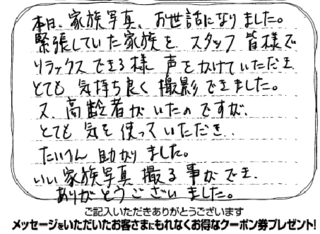 本日、家族写真、お世話になりました。
緊張していた家族を スタッフ皆様で
リラックスできる様 声をかけていただき
とても 気持ち良く 撮影できました。
又、高齢者がいたのですが、
とても 気を使っていただき、
たいへん 助かりました。
いい 家族写真 撮る事ができ、
ありがとうございました。
ご記入いただきありがとうございます
メッセージをいただいたお客さまにもれなくお得なクーポン券プレゼント!